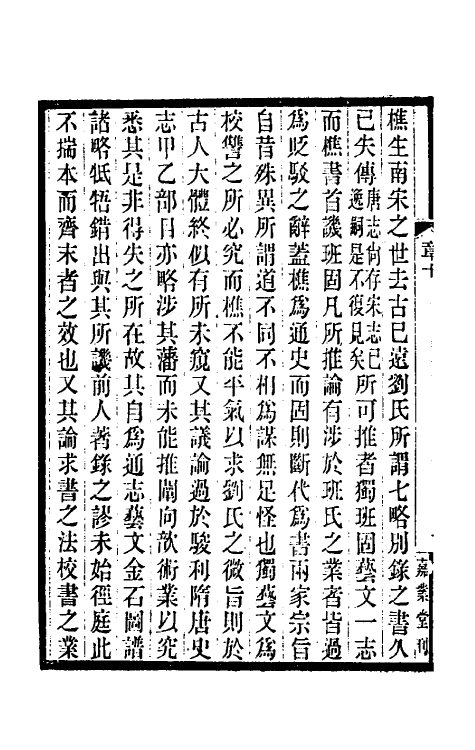 樵生南宋之世去古已遠劉氏所謂七略別錄之書久
已失傳唐志尚存宋志已逸嗣是不復見矣所可推者獨班固藝文一志
而樵書首譏班固凡所推論有涉於班氏之業者皆過
為貶駁之辭蓋樵為通史而固則斷代為書兩家宗旨
自昔殊異所謂道不同不相為謀無足怪也獨藝文為
校讐之所必究而樵不能平氣以求劉氏之微旨則於
古人大體終似有所未窺又其議論過於駿利隋唐史
志甲乙部目亦略涉其藩而未能推闡向歆術業以究
悉其是非得失之所在故其自為通志藝文金石圖譜
諸略牴牾錯出與其所譏前人著錄之謬未始徑庭此
不揣本而齊末者之效也又其論求書之法校書之業
章十
嘉業堂刊